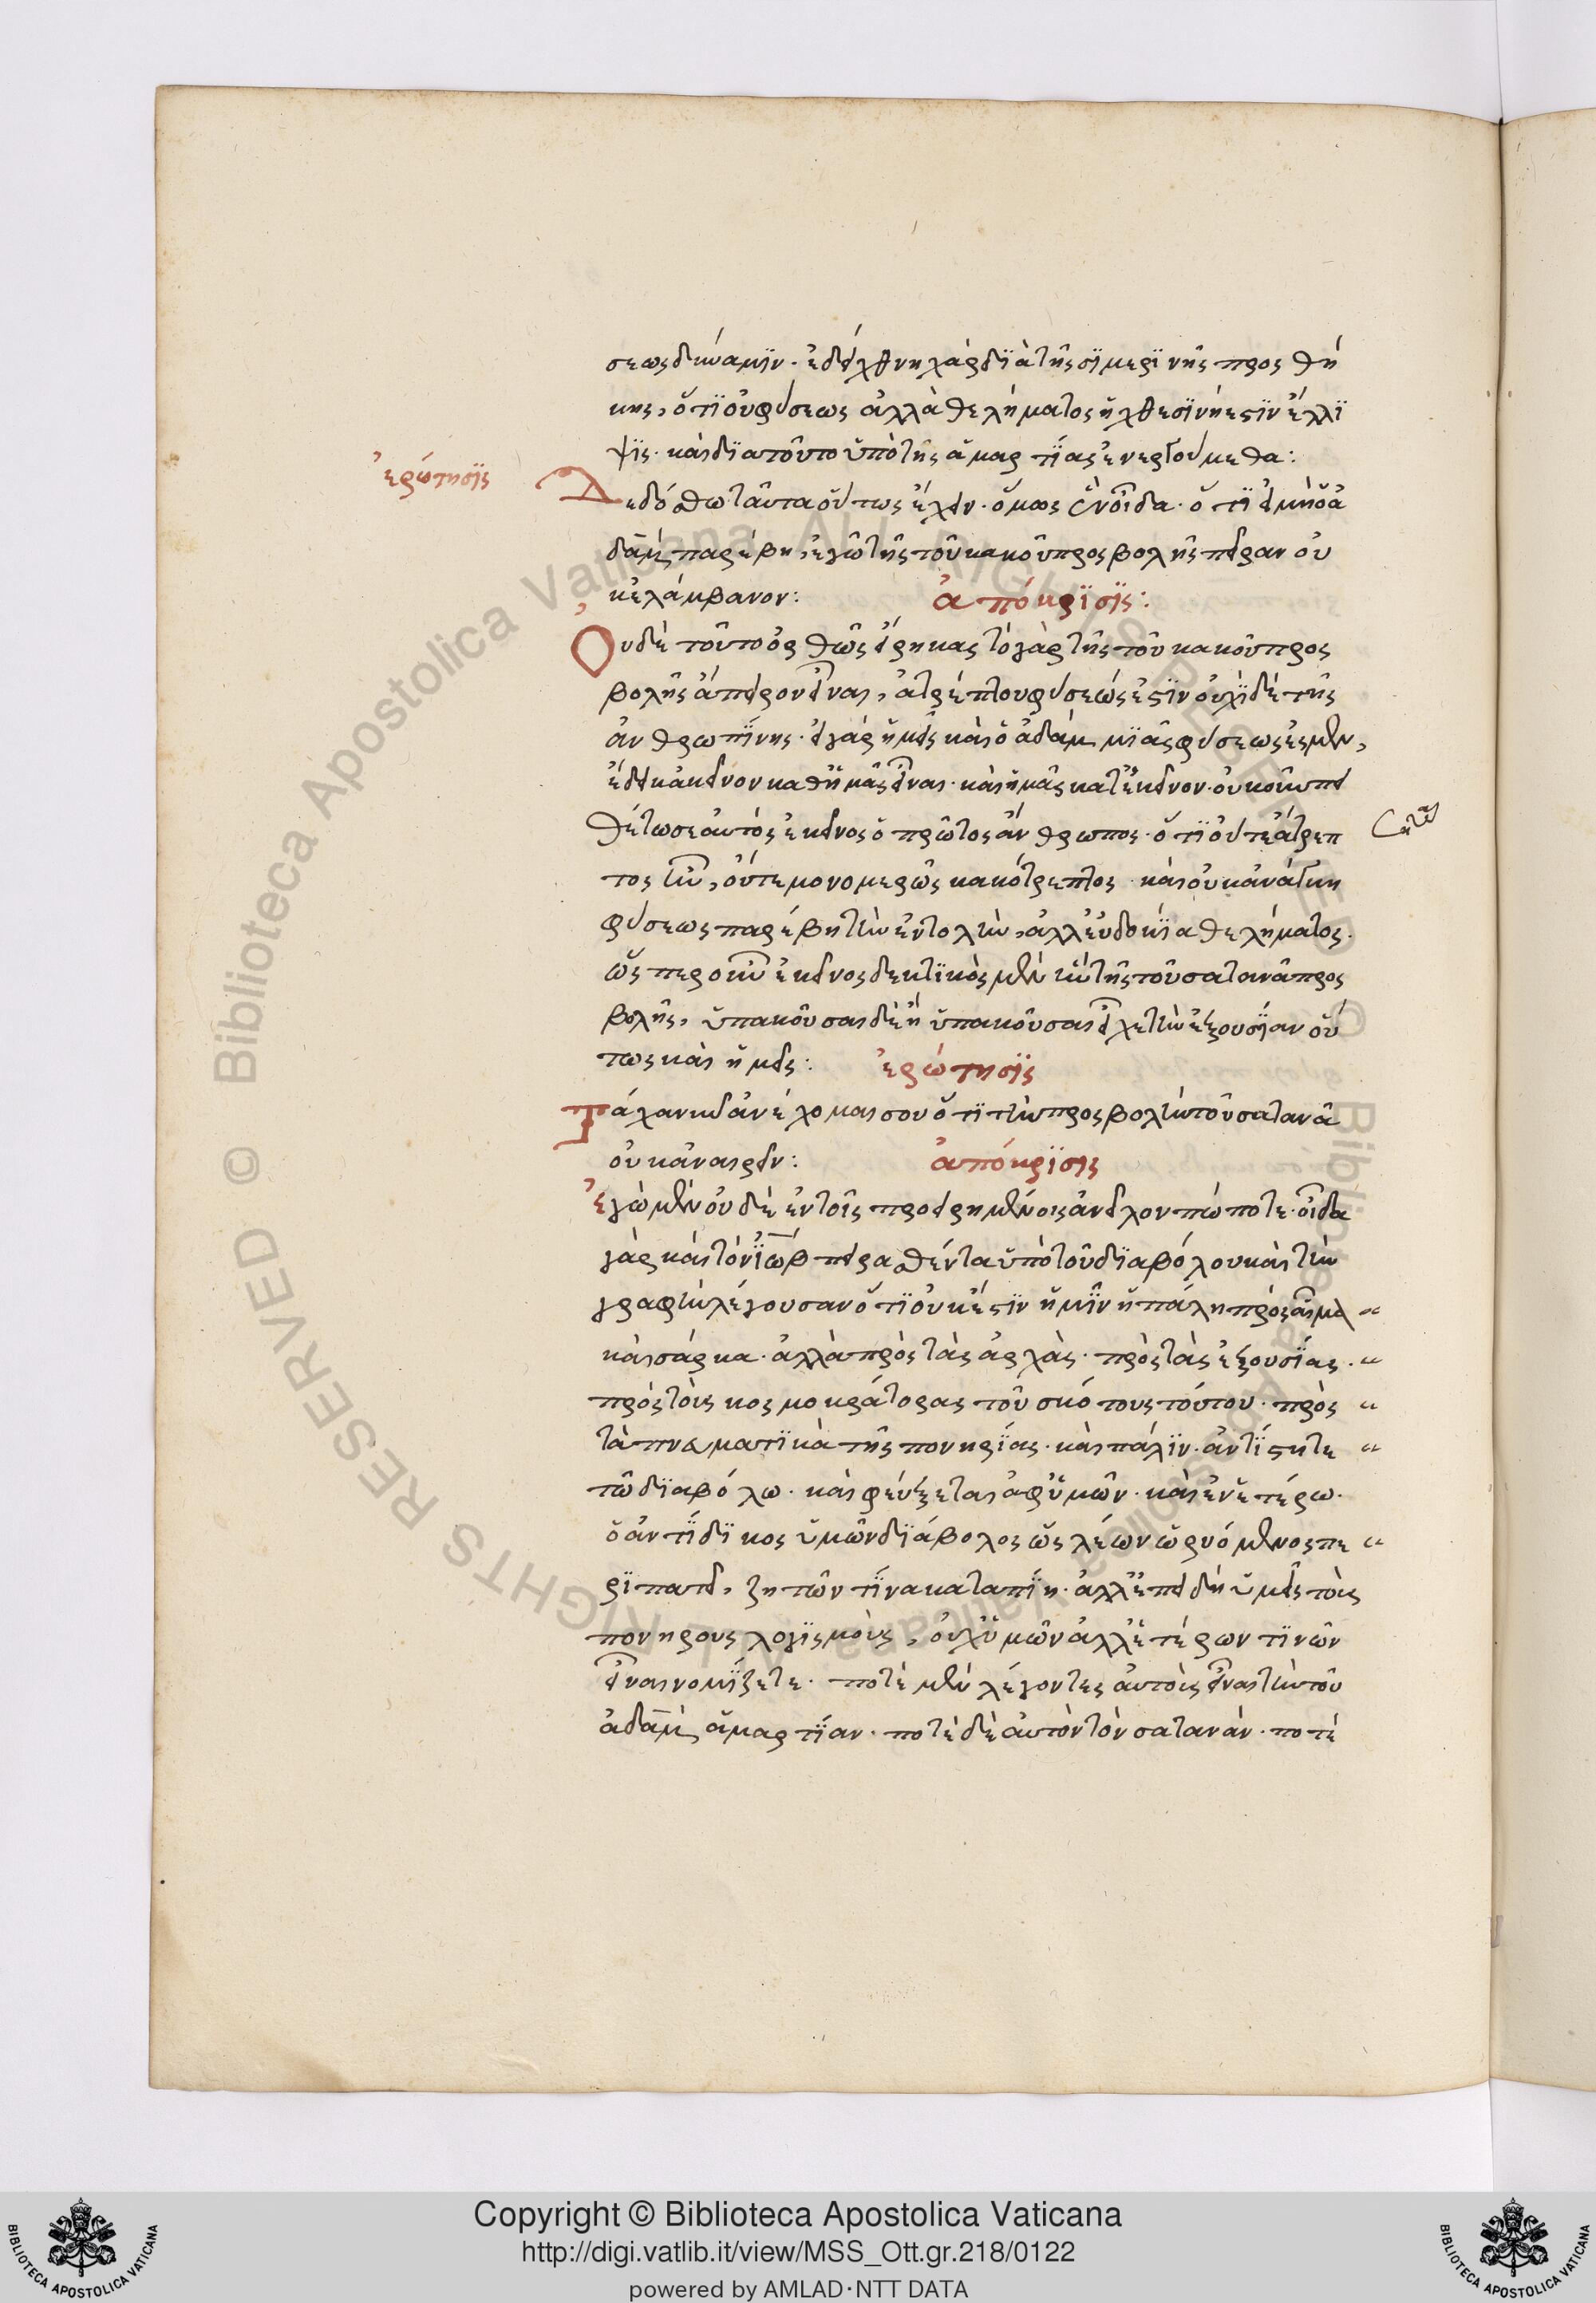 σεως δύναμϊν · ἐδείχθνη γὰρ δϊὰ τῆς σϊμερϊνῆς προσθή
κης, ὅτϊ οὐ φύσεως ἀλλὰ θελήματος ἤχθεσϊνή ἐστϊν ἔλλϊ
ψϊς · καὶ δϊατοῦτο ὑπὸ τῆς ἁμαρτΐας ἐνεργούμεθα :
ἐρώτησϊς
Δεδόσθω ταῦτα οὕτως ἔχειν · ὅμως ἓν οἶδα · ὅτϊ εἰ μὴ ὁ ἀ
δὰμ παρέβη, ἐγὼ τῆς τοῦ κακοῦ προσβολῆς πεῖραν οὐ
κ ἐλάμβανον : ἀπόκρϊσϊς :
Οὐδὲ τοῦτο ὀρθῶς εἴρηκας τὸ γὰρ τῆς τοῦ κακοῦ προσ
βολῆς ἄπειρον εἶναι, ἀτρέπτου φύσεώς ἐστϊν οὐχϊ δὲ τῆς
ἀνθρωπΐνης · εἰ γὰρ ἡμεῖς καὶ ὁ ἀδὰμ μϊᾶς φύσεως ἐσμὲν,
ἔδει κἀκεῖνον καθ ἡμᾶς εἶναι · καὶ ἡμᾶς κατ ἐκεῖνον · οὐκοῦν πει
θέτω σε αὐτὸς ἐκεῖνος ὁ πρῶτος ἄνθρωπος · ὅτϊ οὔτε ἄτρεπ
τος ἦν, οὔτε μονομερῶς κακότρεπτος · καὶ οὐκ ἀνάγκη
φύσεως παρέβη τὴν ἐντολὴν, ἀλλ εὐδοκΐα θελήματος ·
ὥσπερ οὖν ἐκεῖνος δεκτϊκὸς μὲν ἦν τῆς τοῦ σατανᾶ προσ
βολῆς, ὑπακοῦσαι δὲ ἢ ὑπακοῦσαι εἶχε τὴν ἐξουσΐαν οὕ
τως καὶ ἡμεῖς : ἐρώτησϊς
Τάχα νικᾶν ἔχομαι σου ὅτϊ τὴν προσβολὴν τοῦ σατανᾶ
οὐκ ἀναιρεῖν : ἀπόκρϊσις
ἐγὼ μὲν οὐδὲ ἐν τοῖς προειρημένοις ἀνεῖχον πώποτε · οἶδα
γὰρ καὶ τὸν ϊὼβ πειρασθέντα ὑπὸ τοῦ δϊαβόλου καὶ τὴν
γραφὴν λέγουσαν ὅτϊ οὐκ ἔστϊν ἡμῖν ἡ πάλη πρὸς αἷμα
καὶ σάρκα · ἀλλὰ πρὸς τὰς ἀρχὰς · πρὸς τὰς ἐξουσΐας ·
πρὸς τοὺς κοσμοκράτορας τοῦ σκότους τούτου · πρὸς
τὰ πνευματϊκὰ τῆς πονηρΐας · καὶ πάλϊν · ἀντΐστητε
τῶ δϊαβόλω · καὶ φεύξεται ἀφ ὑμῶν · καὶ ἐν ἑτέρω ·
ὁ ἀντΐδϊκος ὑμῶν δϊάβολος ὡς λέων ὠρυόμενος πε
ρϊπατεῖ, ζητῶν τΐνα καταπΐη · ἀλλ ἐπειδὴ ὑμεῖς τοὺς
πονηρους λογϊσμοὺς, οὐχ ὑμῶν ἀλλ ἑτέρων τϊνῶν
εἶναι νομΐζετε · ποτὲ μὲν λέγοντες αὐτοὺς εἶναι τὴν τοῦ
ἀδὰμ ἁμαρτΐαν · ποτὲ δὲ αὐτὸν τὸν σατανὰν · ποτὲ
Copyright © Biblioteca Apostolica Vaticana
http://digi.vatlib.it/view/MSS_Ott.gr.218/0122
powered by AMLAD·NTT DATA
BIBLIOTECA APOSTOLICA VATICANA
BIBLIOTECA APOSTOLICA VATICANA